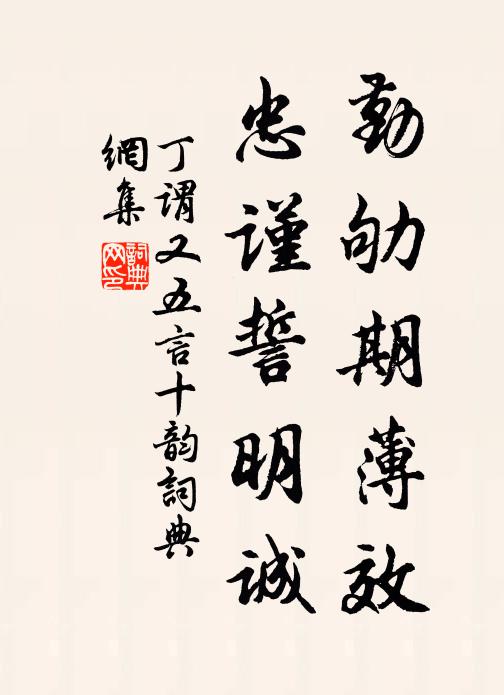 勤劬期薄效
忠謹誓明誠
丁謂又五言十韵詞典
網集
詞典
网印